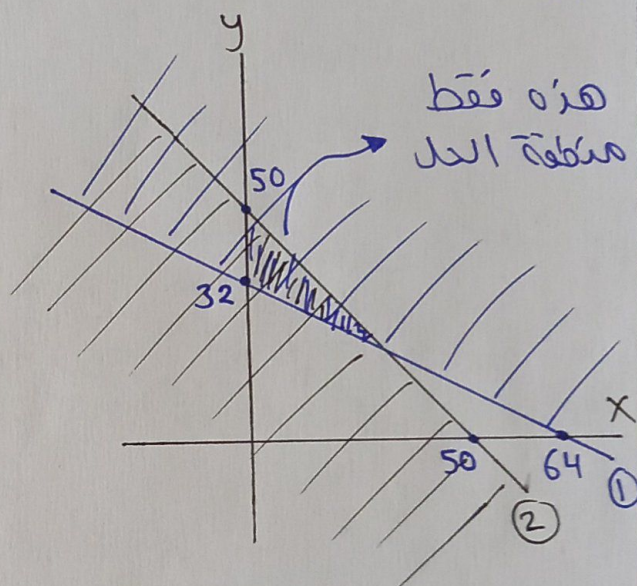 y
هذه فقط
منطقة الحل
50
32
x
50
64
1
2